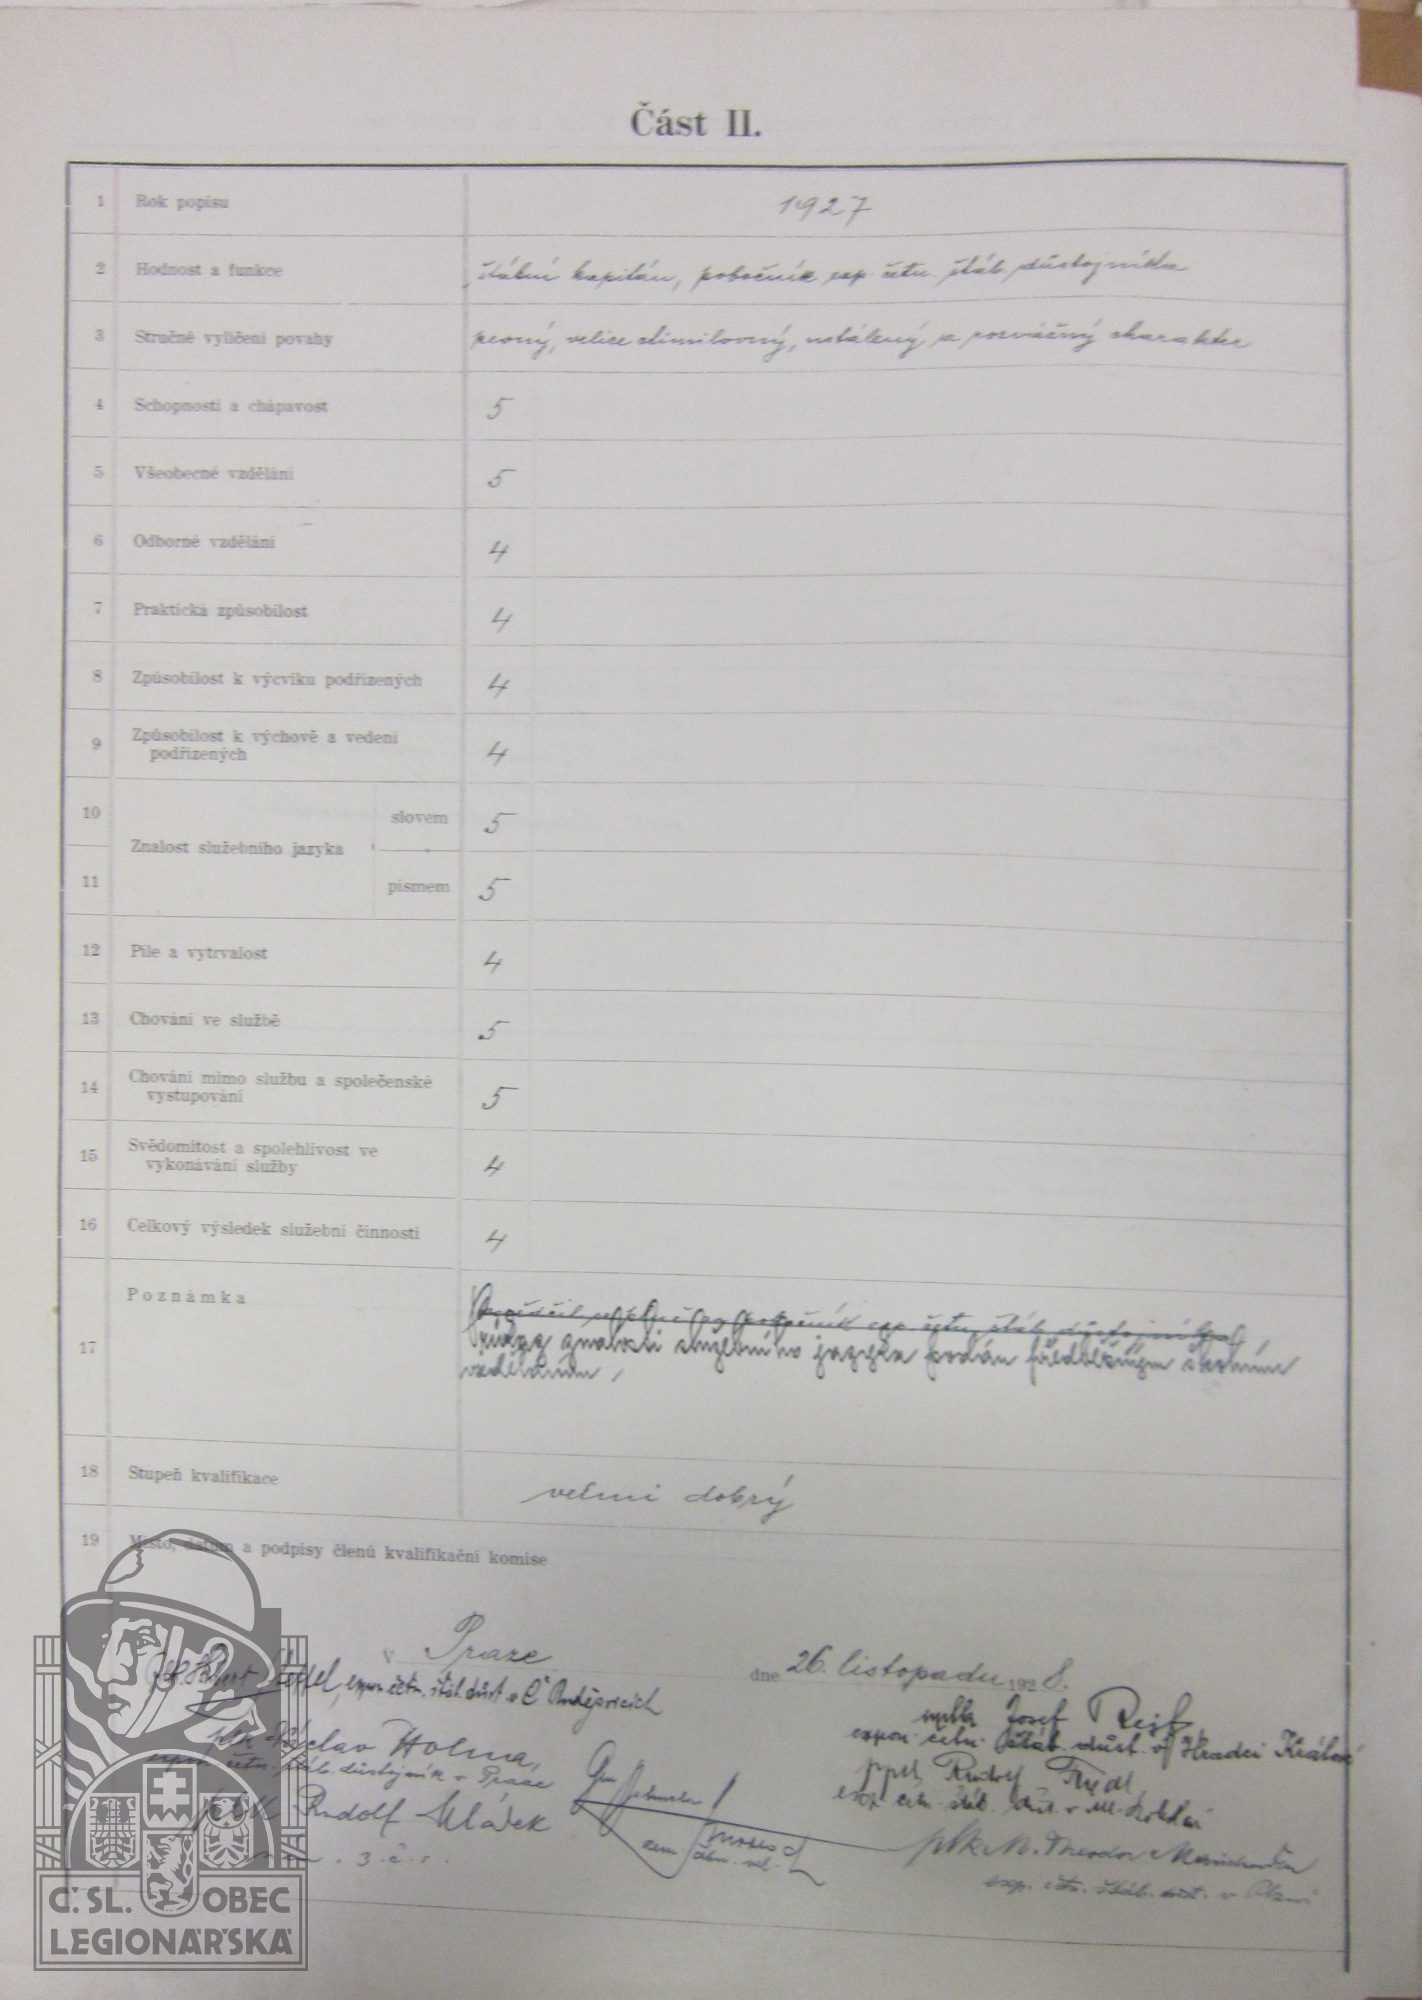 Část II.
1 Rok popisu 1927
2 Hodnost a funkce štábní kapitán, pobočník exp. četn. štáb. důstojníka
3 Stručné vylíčení povahy pevný, velice ctimilovný, ustálený a rozvážný charakter
4 Schopnosti a chápavost 5
5 Všeobecné vzdělání 5
6 Odborné vzdělání 4
7 Praktická způsobilost 4
8 Způsobilost k výcviku podřízených 4
9 Způsobilost k výchově a vedení
podřízených 4
10 slovem 5
Znalost služebního jazyka
11 písmem 5
12 Píle a vytrvalost 4
13 Chování ve službě 5
14 Chování mimo službu a společenské
vystupování 5
15 Svědomitost a spolehlivost ve
vykonávání služby 4
16 Celkový výsledek služební činnosti 4
Poznámka
pobočník exp. četn. štáb. důstojníka
17 znalosti služebního jazyka podán předběžným školním
vzděláním,
18 Stupeň kvalifikace velmi dobrý
19 Místo, datum a podpisy členů kvalifikační komise
V Praze dne 26. listopadu 1928.
expon. četn. štáb. důst. v Č. Budějovicích
Josef
expon. četn. štáb. důst. v Hradci Králové
plk Václav Holma,
expon. četn. štáb. důstojník v Praze
pplk Rudolf
exp. četn. štáb. důst. v
Rudolf Mládek
zem. četn. vel.
plk M. Theodor
exp. četn. štáb. důst. v Plzni
Č. SL. OBEC
LEGIONÁŘSKÁ